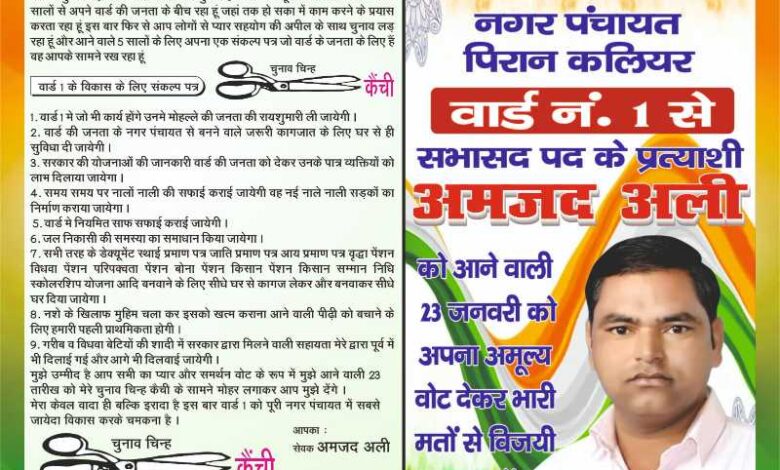 सालों से अपने वार्ड की जनता के बीच रहा हूं जहां तक हो सका में काम करने के प्रयास
करता रहा हूं इस बार फिर से आप लोगों से प्यार सहयोग की अपील के साथ चुनाव लड़
रहा हूं और आने वाले 5 सालों के लिए अपना एक संकल्प पत्र जो वार्ड के जनता के लिए हैं
वह आपके सामने रख रहा हूं
वार्ड 1 के विकास के लिए संकल्प पत्र
चुनाव चिन्ह
कैंची
1. वार्ड 1 मे जो भी कार्य होंगे उनमे मोहल्ले की जनता की रायशुमारी ली जायेगी ।
2. वार्ड की जनता के नगर पंचायत से बनने वाले जरूरी कागजात के लिए घर से ही
सुविधा दी जायेगी ।
3. सरकार की योजनाओं की जानकारी वार्ड की जनता को देकर उनके पात्र व्यक्तियों को
लाभ दिलाया जायेगा ।
4. समय समय पर नालों नाली की सफाई कराई जायेगी वह नई नाले नाली सड़कों का
निर्माण कराया जायेगा ।
5. वार्ड मे नियमित साफ सफाई कराई जायेगी ।
6. जल निकासी की समस्या का समाधान किया जायेगा ।
7. सभी तरह के डेक्यूमेंट स्थाई प्रमाण पत्र जाति प्रमाण पत्र आय प्रमाण पत्र वृद्धा पेंशन
विधवा पेंशन परिपक्वता पेंशन बोना पेंशन किसान पेंशन किसान सम्मान निधि
स्कोलरशिप योजना आदि बनवाने के लिए सीधे घर से कागज लेकर और बनवाकर सीधे
घर दिया जायेगा ।
8. नशे के खिलाफ मुहिम चला कर इसको खत्म कराना आने वाली पीढ़ी को बचाने के
लिए हमारी पहली प्राथमिकता होगी ।
9. गरीब व विधवा बेटियों की शादी में सरकार द्वारा मिलने वाली सहायता मेरे द्वारा पूर्व में
भी दिलाई गई और आगे भी दिलवाई जायेगी ।
मुझे उम्मीद है आप सभी का प्यार और समर्थन वोट के रूप में मुझे आने वाली 23
तारीख को मेरे चुनाव चिन्ह कैंची के सामने मोहर लगाकर आप मुझे देंगे ।
मेरा केवल वादा ही बल्कि इरादा है इस बार वार्ड 1 को पूरी नगर पंचायत में सबसे
जायेदा विकास करके चमकना है ।
चुनाव चिन्ह
कैंची
आपका :
सेवक अमजद अली
नगर पंचायत
पिरान कलियर
वार्ड नं. 1 से
सभासद पद के प्रत्याशी
अमजद अली
को आने वाली
23 जनवरी को
अपना अमूल्य
वोट देकर भारी
मतों से विजयी